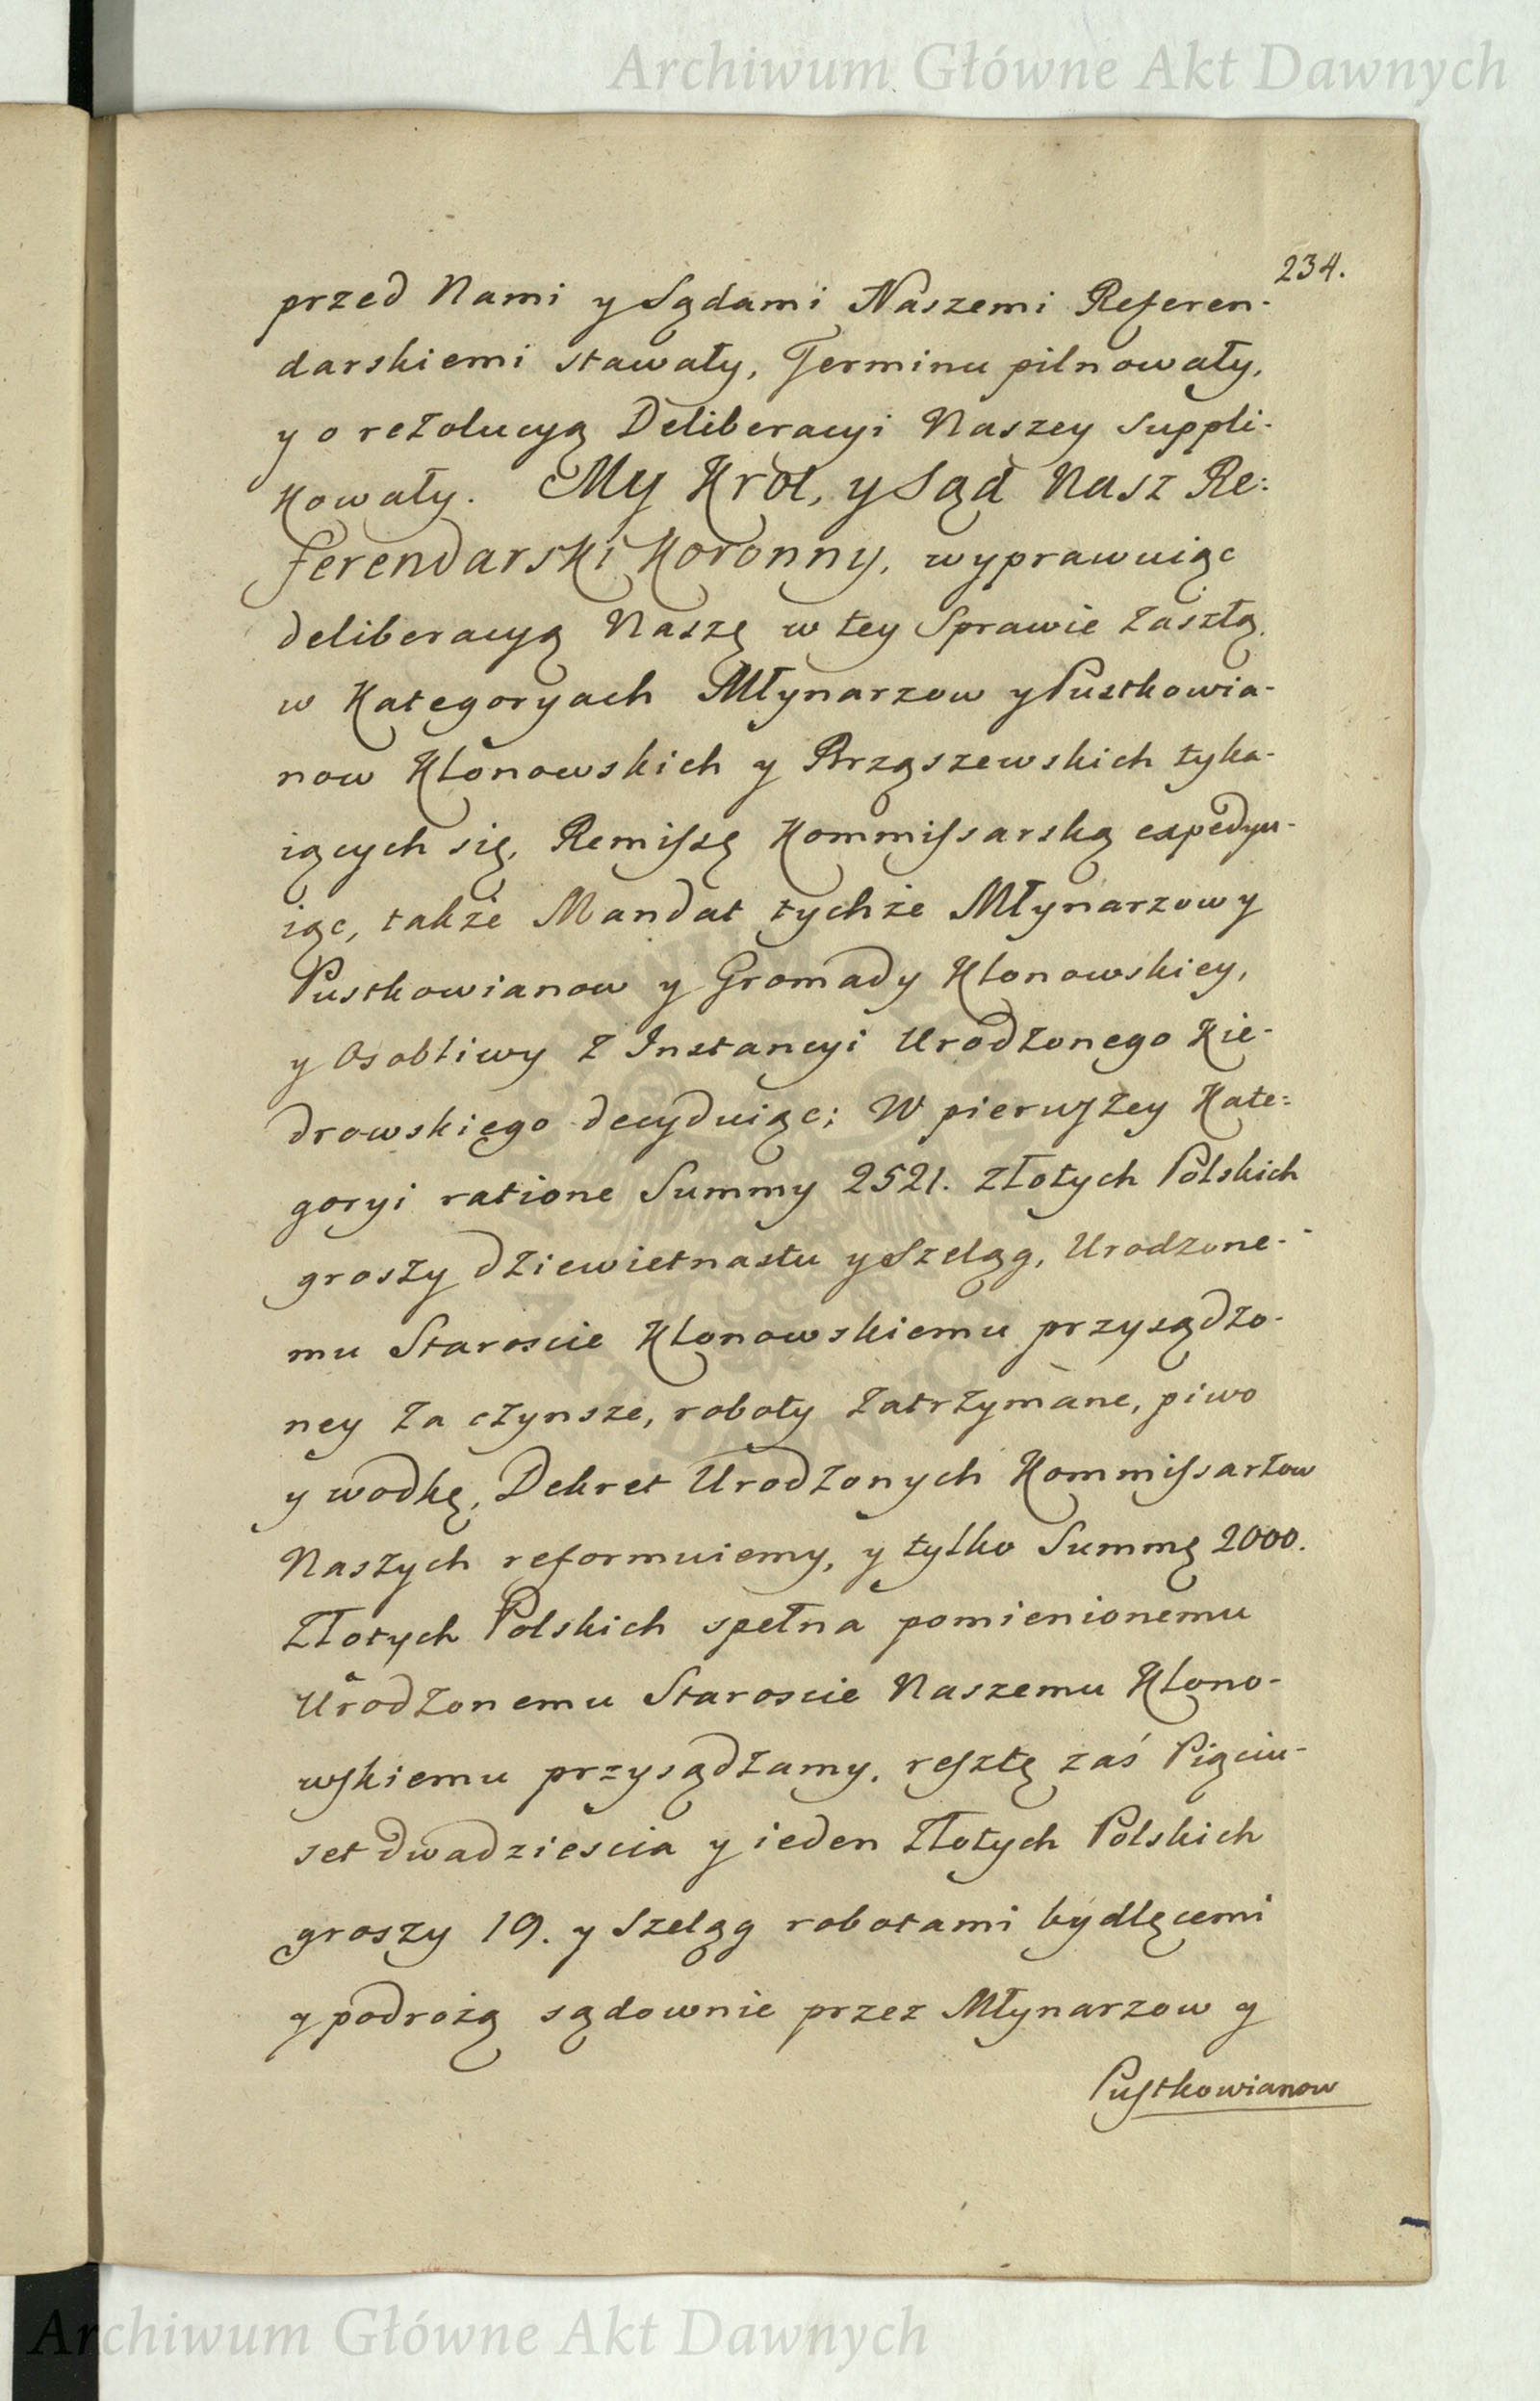 Archiwum Główne Akt Dawnych
234.
przed Nami y Sądami Naszemi Referen-
darskiemi stawały, Terminu pilnowały,
y o rezolucyą Deliberacyi Naszey Suppli-
kowały. My Krol, y Sąd Nasz Re:
ferendarski Koronny, wyprawuiąc
deliberacyą Naszę w tey Sprawie zaszłą,
w Kategoryach Młynarzow y Pustkowia-
now Klonowskich y Brząszewskich tyka-
iących się, Remissę Kommissarską expedyu-
iąc, także Mandat tychże Młynarzow y
Pustkowianow y Gromady Klonowskiey,
y Osobliwy z Instancyi Urodzonego Kie-
drowskięgo decyduiąc; W pierwszey Kate:
goryi ratione Summy 2521. złotych Polskich
groszy dziewietnastu y Szeląg, Urodzone-
mu Staroscie Klonowskiemu przysądzo-
ney za czynsze, roboty zatrzymane, piwo
y wodkę, Dekret Urodzonych Kommissarzow
Naszych reformuiemy, y tylko Summę 2000.
Złotych Polskich spełna pomienionemu
Urodzonemu Staroscie Naszemu Klono-
wskiemu przysądzamy, resztę zaś Pięciu-
set dwadziescia y ieden Złotych Polskich
groszy 19. y Szeląg robotami bydlęcemi
y podrożą sądownie przez Młynarzow y
Pustkowianow
Archiwum Główne Akt Dawnych